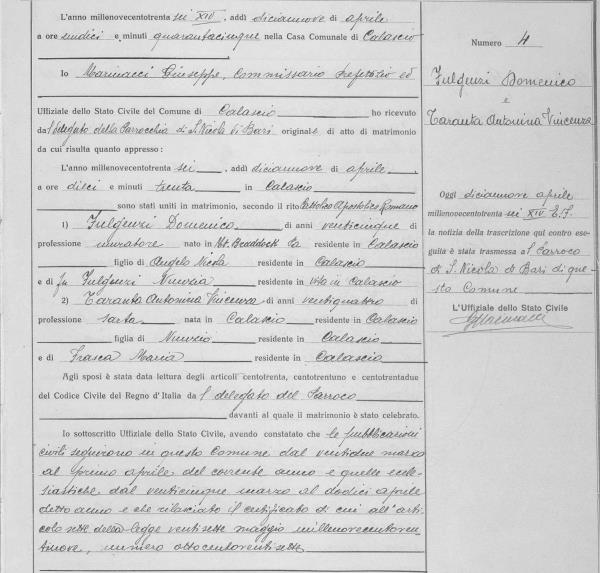 L'anno millenovecentotrenta sei XIV, addì diciannove di aprile
a ore undici e minuti quarantacinque nella Casa Comunale di Calascio
Io Marinacci Giuseppe, Commissario Prefettizio ed
Uffiziale dello Stato Civile del Comune di Calascio ho ricevuto
dal delegato della Parrocchia di S. Nicola di Bari originale di atto di matrimonio
da cui risulta quanto appresso:
L'anno millenovecentotrenta sei, addì diciannove di aprile,
a ore dieci e minuti trenta in Calascio
sono stati uniti in matrimonio, secondo il rito Cattolico Apostolico Romano
1) Fulgenzi Domenico di anni venticinque di
professione muratore nato in Braddock Pa residente in Calascio
figlio di Angelo Nicola residente in Calascio
e di fu Fulgenzi Nunzia residente in vita in Calascio
2) Taranta Antonina Vincenza di anni ventiquattro di
professione sarta nata in Calascio residente in Calascio
figlia di Nunzio residente in Calascio
e di Frasca Maria residente in Calascio
Agli sposi è stata data lettura degli articoli centotrenta, centotrentuno e centotrentadue
del Codice Civile del Regno d'Italia da l delegato del Parroco
davanti al quale il matrimonio è stato celebrato.
Io sottoscritto Uffiziale dello Stato Civile, avendo constatato che le pubblicazioni
civili seguirono in questo Comune dal ventidue marzo
al primo aprile del corrente anno e quelle eccle-
siastiche dal venticinque marzo al dodici aprile
detto anno e che rilasciato il certificato di cui all'arti-
colo sette della legge ventisette maggio millenovecentoven-
tinove, numero ottocentoventisette
Numero 4
Fulgenzi Domenico
e
Taranta Antonina Vincenza
Oggi diciannove aprile
millenovecentotrenta sei XIV E.F.
la notizia della trascrizione qui contro ese-
guita è stata trasmessa al Parroco
di S. Nicola di Bari di que-
sto Comune
L'Uffiziale dello Stato Civile